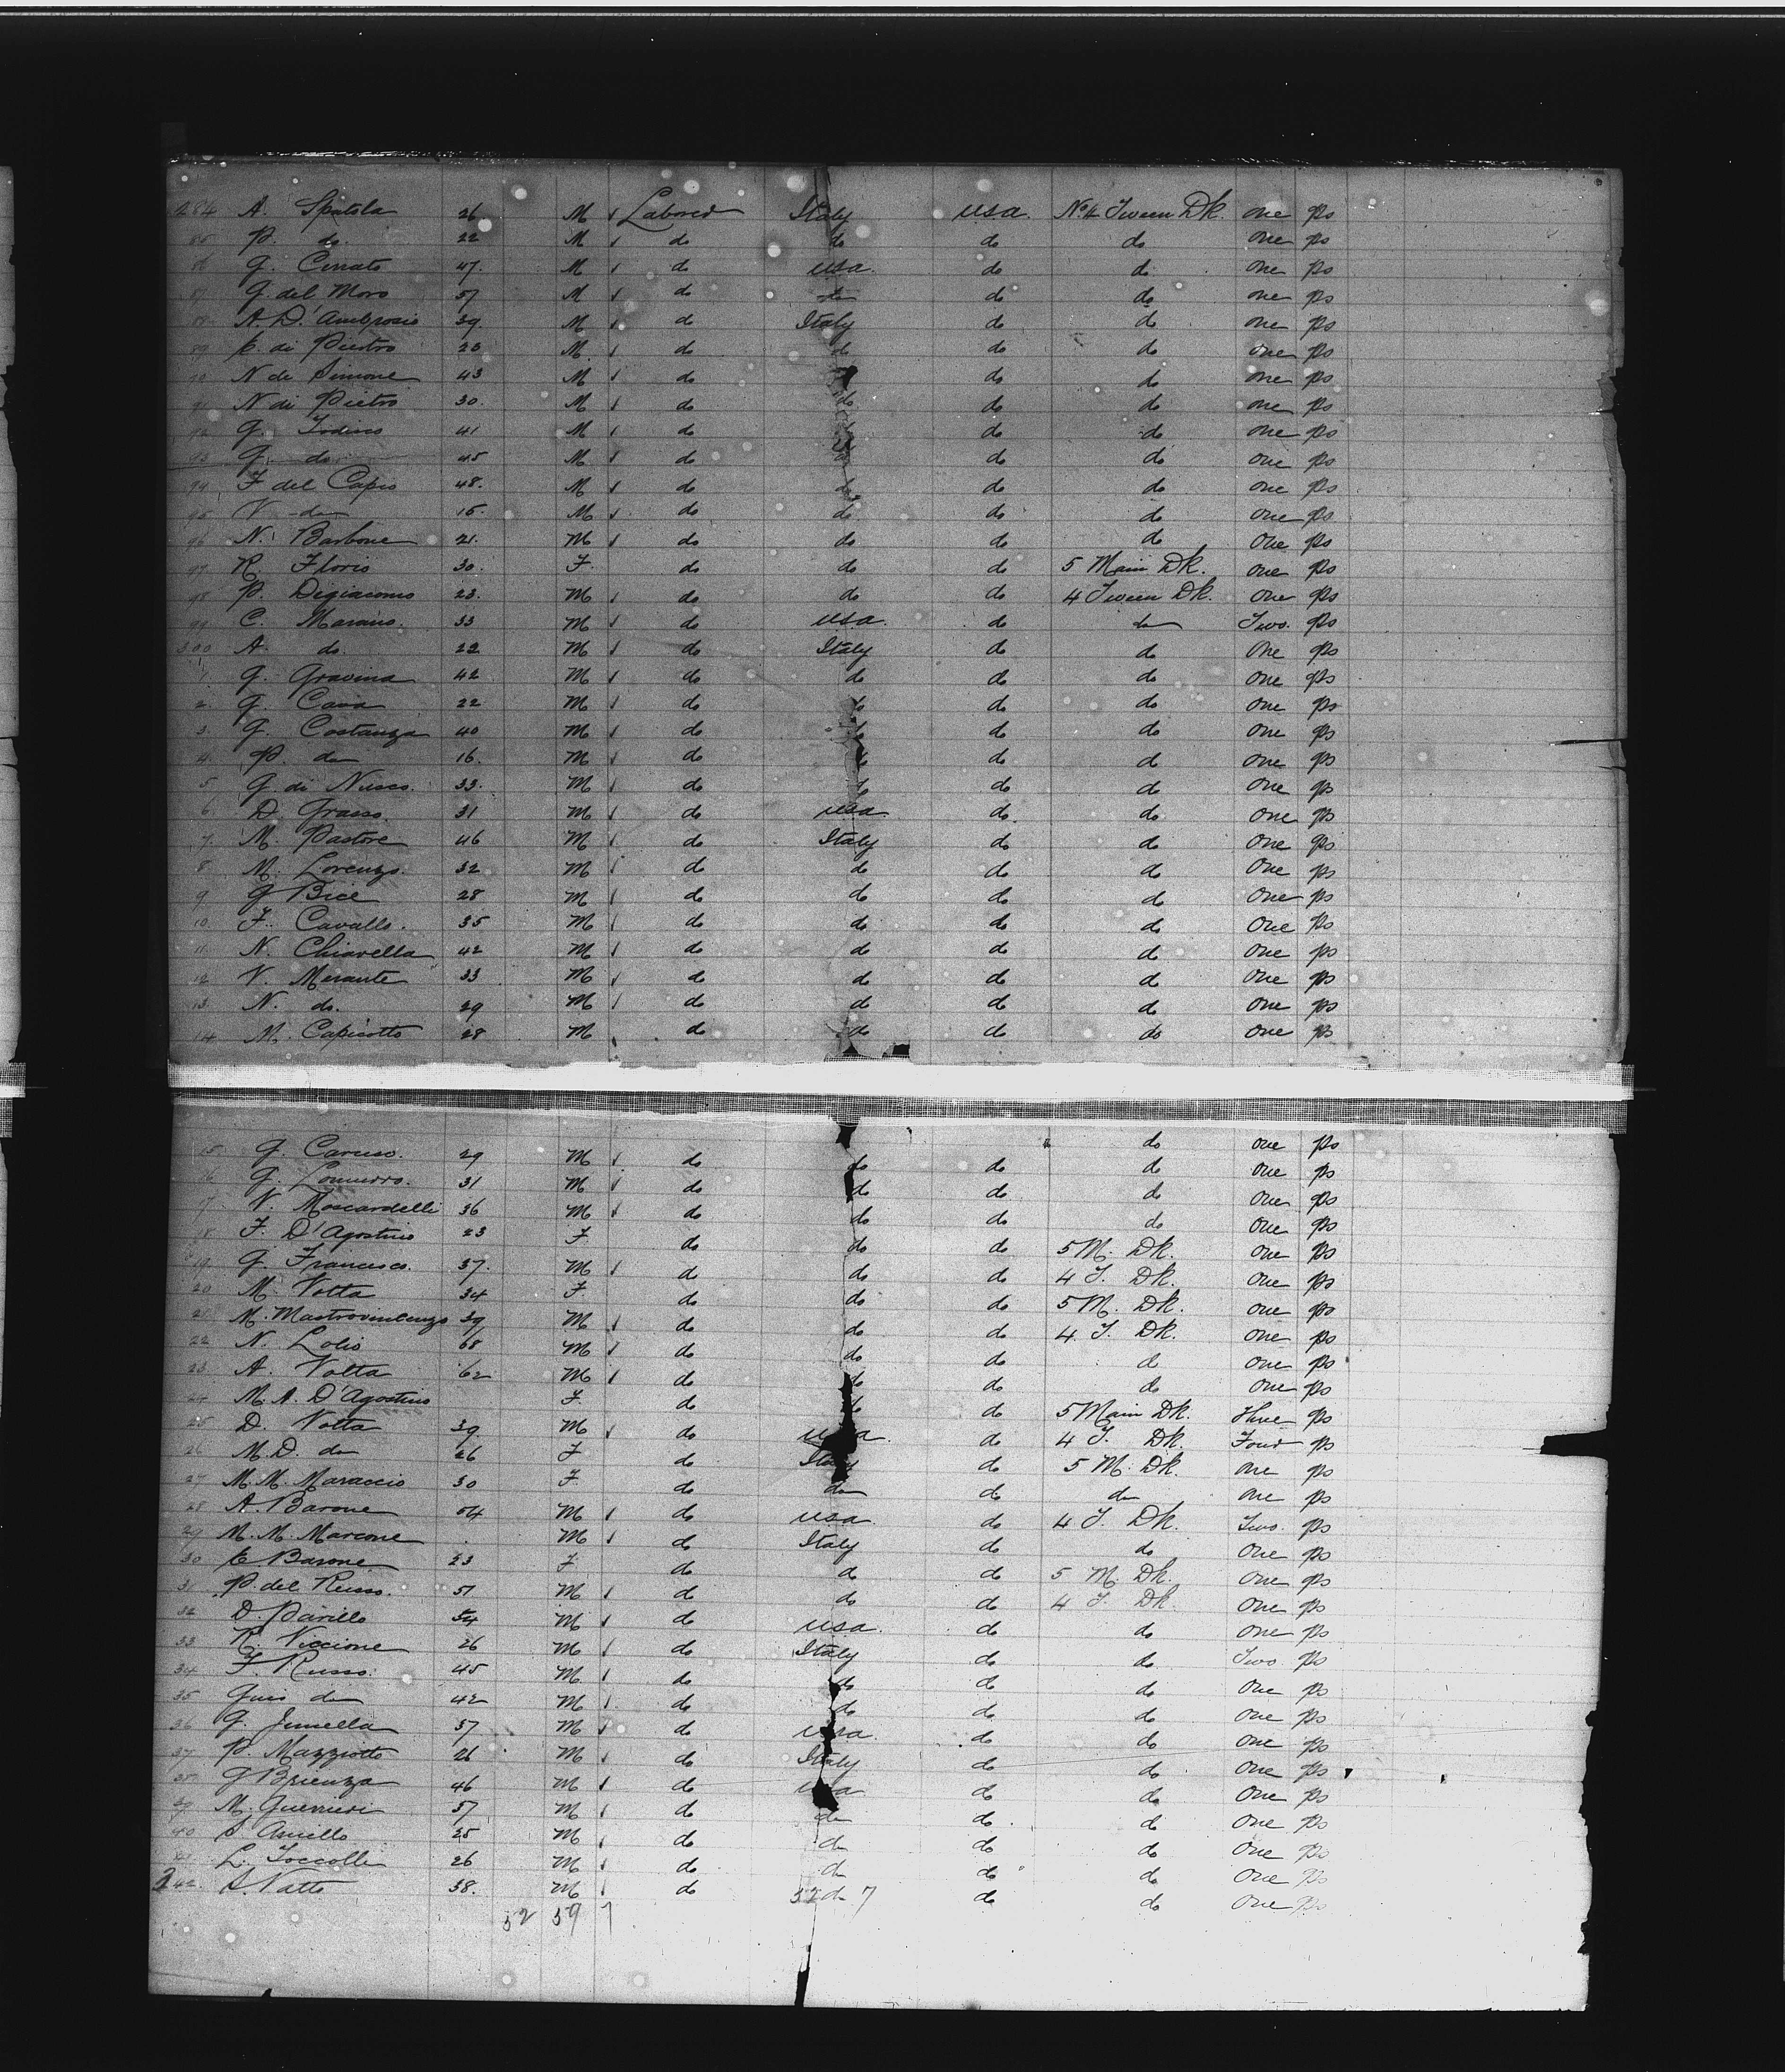 284 A. Spatola 26 M Laborer Italy USA. No 4 Tween Dk. one ps
85 P. do. 22 M do do do do one ps
86 G. Cerrato 47. M do USA. do do one ps
87 G. del Moro 57 M do do do do one ps
88 A. D'Ambrosio 39 M do Italy do do one ps
89 C. di Pietro 23 M do do do do one ps
90 N di Simone 43 M do do do one ps
91 N di Pietro 30. M do do do do one ps
92 G. Iodico 41 M do do do one ps
93 G. do 45 M do do do do one ps
94 F del Capio 48. M do do do do one ps
95 V do 15. M do do do do one ps
96 N. Barbone 21. M do do do do One ps
97 R. Florio 30. F. do do do 5 Main Dk. one ps
98 P. Digiacomo 23. M do do do 4 Tween Dk. one ps
99 C. Marano. 33 M do USA. do do Two. ps
300 A. do. 22 M do Italy do do One ps
1. G. Gravina 42 M do do do do one ps
2. G. Cava 22 M do do do do one ps
3. G. Costanza 40 M do do do do one ps
4. P. do 16. M do do do do one ps
5 G. di Nusco. 33. M do do do do one ps
6. D. Grasso. 31 M do USA do. do. one ps
7. M. Pastore 46 M do Italy do do One ps
8 M. Lorenzo. 32 M do do do do One ps
9 G Bice 28 M do do do do One ps
10. F. Cavallo. 35 M do do do do One ps
11. N. Chiarella 42 M do do do do one ps
12 V. Merante 33 M do do do do one ps
13. N. do. 29 M do do do do one ps
14 M. Capicotto 28 M do do do do one ps
15 G. Caruso. 29 M do do do do one ps
16 G. 31 M do do do do one ps
17 V. Moscardelli 36 M do do do do one ps
18 F. D'Agostino 23 F do do do do one ps
19 G. Francesco. 37. M do do do 5 M. Dk. one ps
20 M. Votta 34 F do do do 4 T. Dk. one ps
21 M. Mastrovincenzo 39 M do do do 5 M. Dk. one ps
22 N. Lolio 68 M do do do 4 T. Dk. one ps
23 A. Votta 62 M do do do do one ps
24 M. A. D'Agostino F do do do do one ps
25 D. Votta 39 M do USA. do 5 Main Dk. Three ps
26 M. D. do 26 F do Italy do 4 T. Dk. Four ps
27 M. M. Maraccio 30 F. do do do 5 M. Dk. one ps
28 A. Barone 54 M do USA do do one ps
29 M. M. Marcone M do Italy do 4 T. Dk. Two. ps
30 C. Barone 23 F do do do do One ps
31 P. del Russo. 51 M do do do 5 M. Dk. One ps
32 D. Parillo 54 M do USA. do 4 T. Dk. One ps
33 R. Viccione 26 M do Italy do do One ps
34 F. Russo. 45 M do do do do Two ps
35 Guis do 42 M do do do do One ps
36 G. 57 M do USA. do do One ps
37 P. Mazziotto 26 M do Italy do do One ps
38 G Brienza 46 M do USA do do One ps
39 M. Guerrieri 57 M do do do do One ps
40 S. Aniello 25 M do do do do One ps
41 L. Toccolli 26 M do do do do One ps
342. S. Vatto 38. M do do do do One ps
32 59 7 52 7